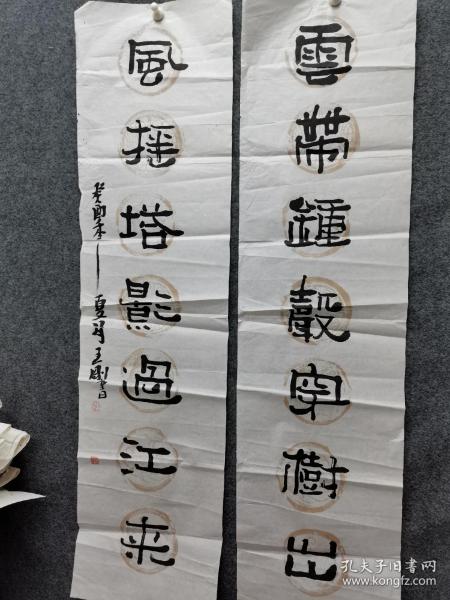 雲帶鐘聲穿樹出
風搖塔影過江来
癸酉年夏月王剛書
孔夫子旧书网
www.kongfz.com